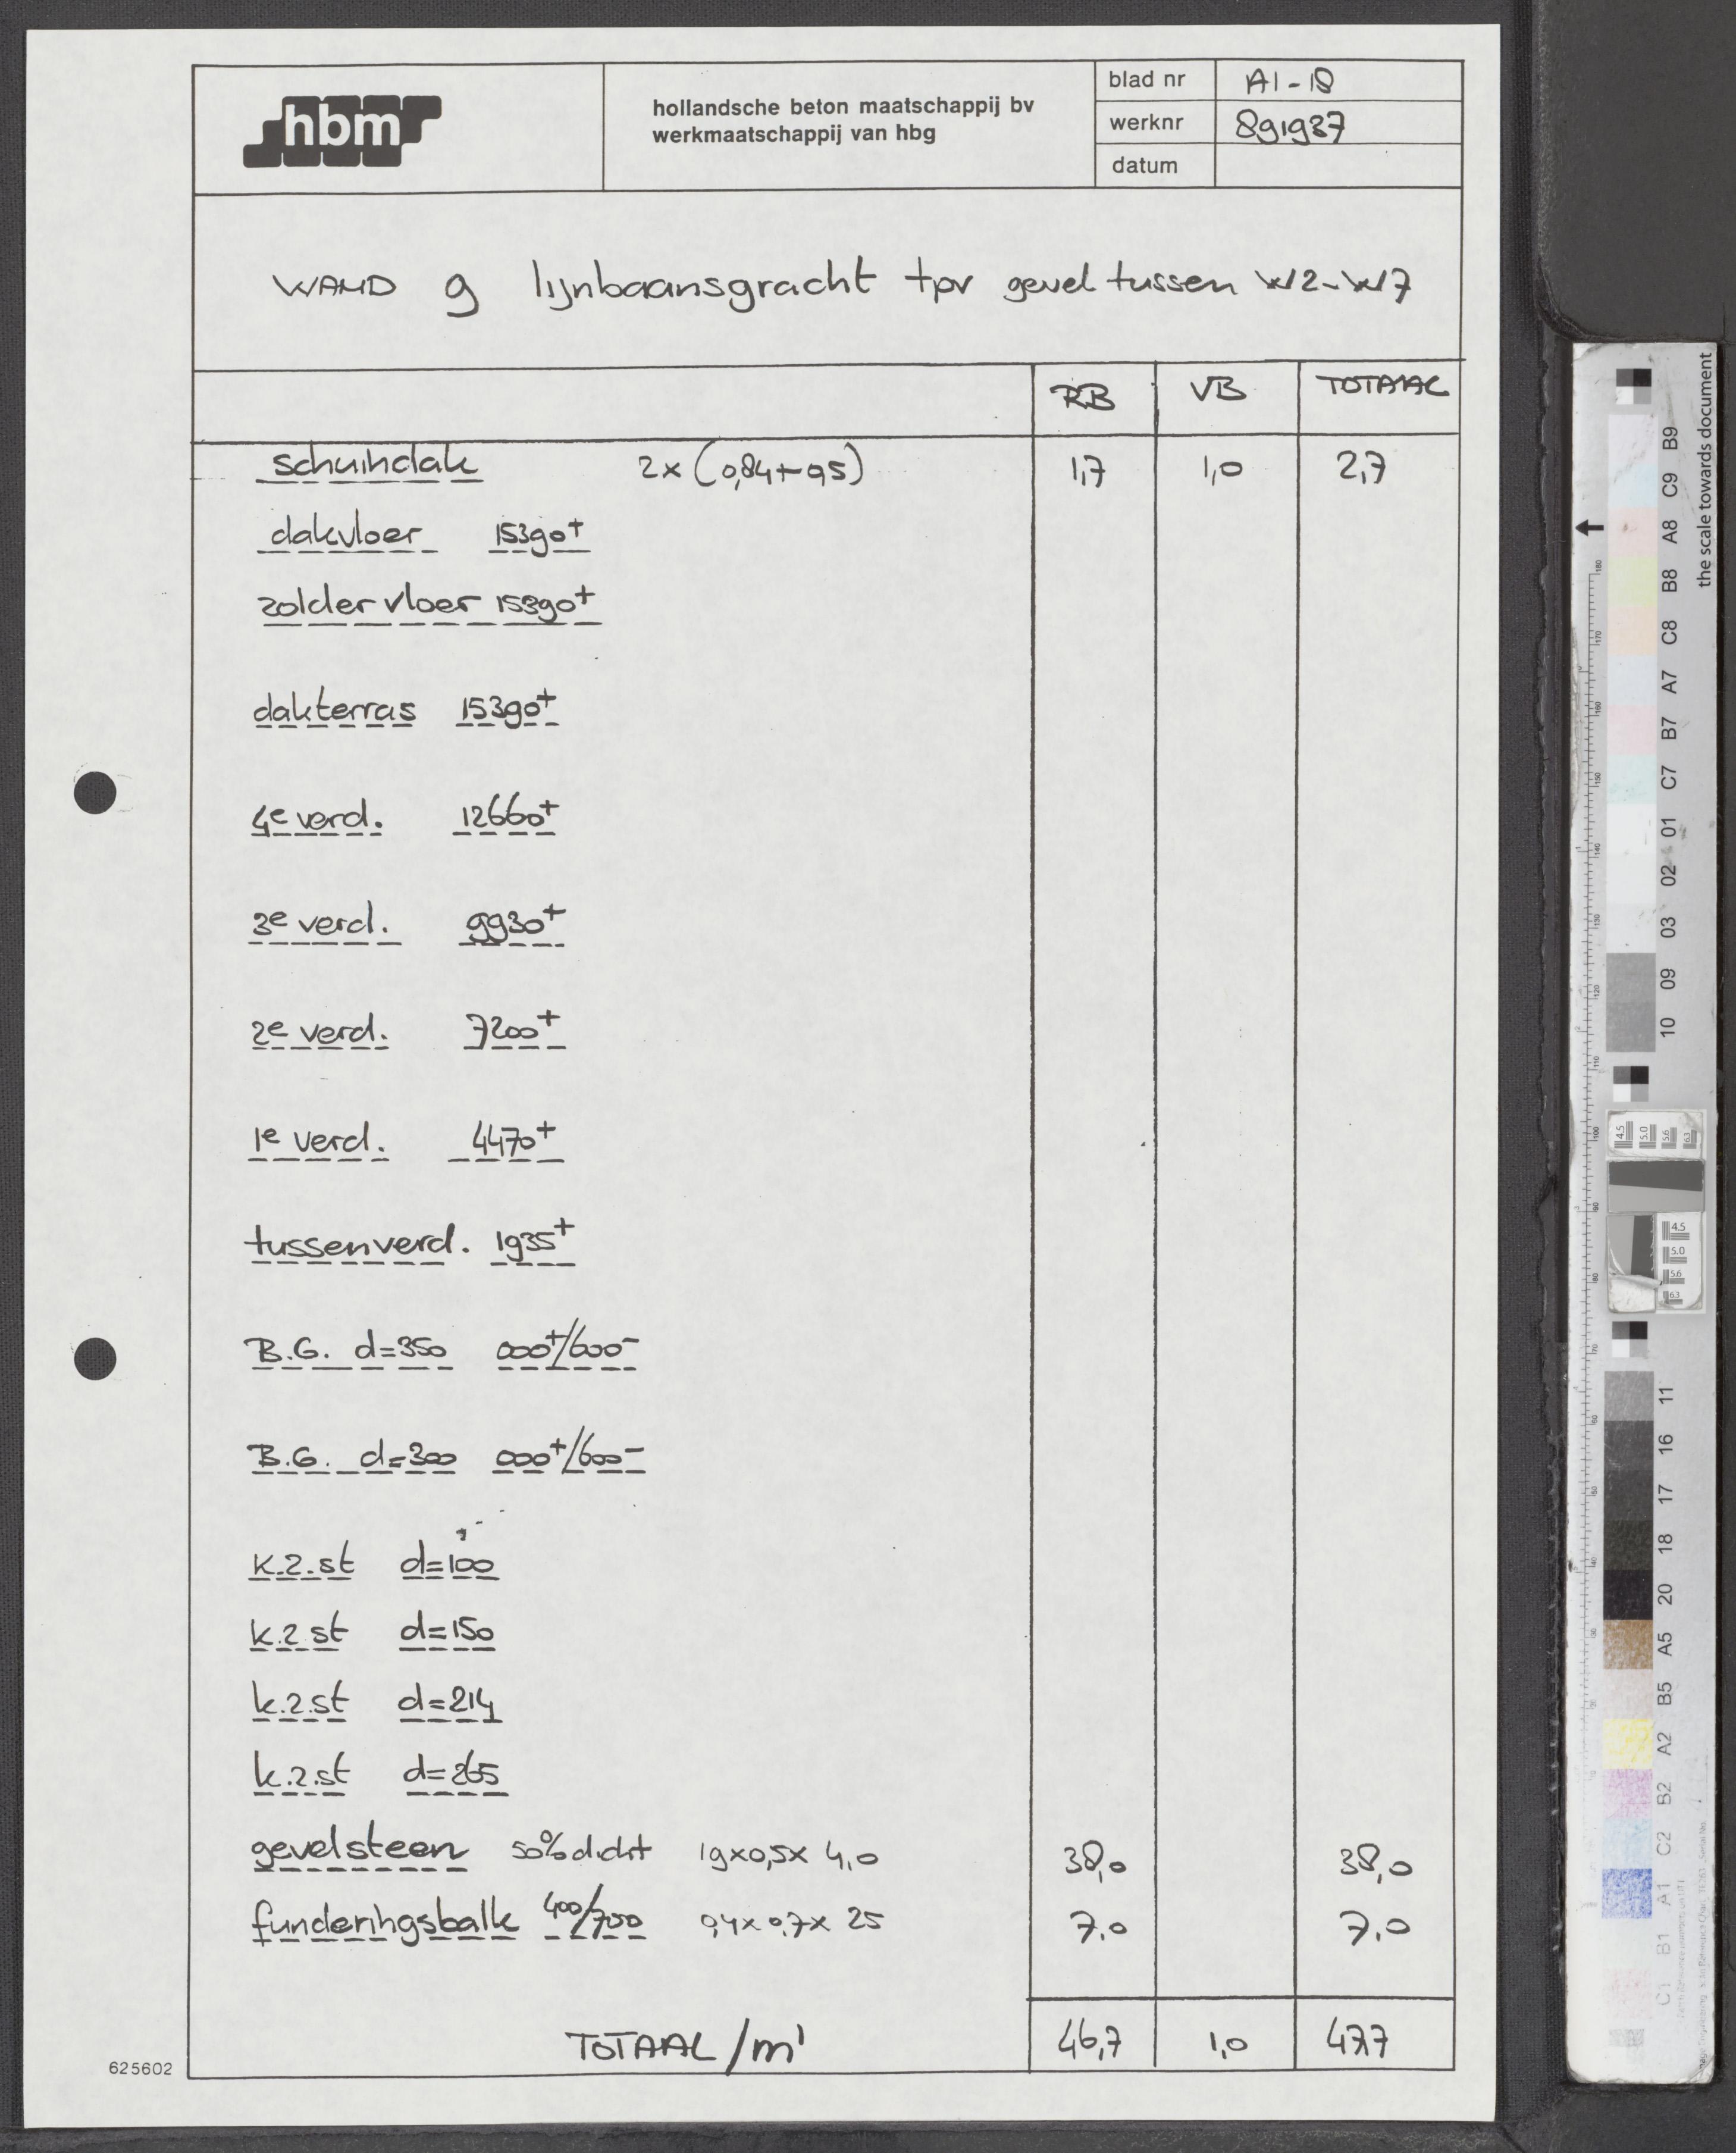 hbm
hollandsche beton maatschappij bv
werkmaatschappij van hbg
blad nr A1-18
werknr 891937
datum
WAND 9 lijnbaansgracht tpv gevel tussen W2-W7
RB VB TOTAAL
schuindak 2x (0,84+0,5) 1,7 1,0 2,7
dakvloer 15390+
zoldervloer 15390+
dakterras 15390+
4e verd. 12660+
3e verd. 9930+
2e verd. 7200+
1e verd. 4470+
tussenverd. 1935+
B.G. d=350 000+/600-
B.G. d=300 000+/600-
k.z.st d=100
k.z.st d=150
k.z.st d=214
k.z.st d=265
gevelsteen 50% dicht 19x0,5x 4,0 38,0 38,0
funderingsbalk 400/700 0,4x0,7x 25 7,0 7,0
TOTAAL/m' 46,7 1,0 47,7
625602
the scale towards document
B9
C9
A8
B8
C8
A7
B7
C7
01
02
03
09
10
11
16
17
18
20
A5
B5
A2
B2
C2
A1
B1
C1